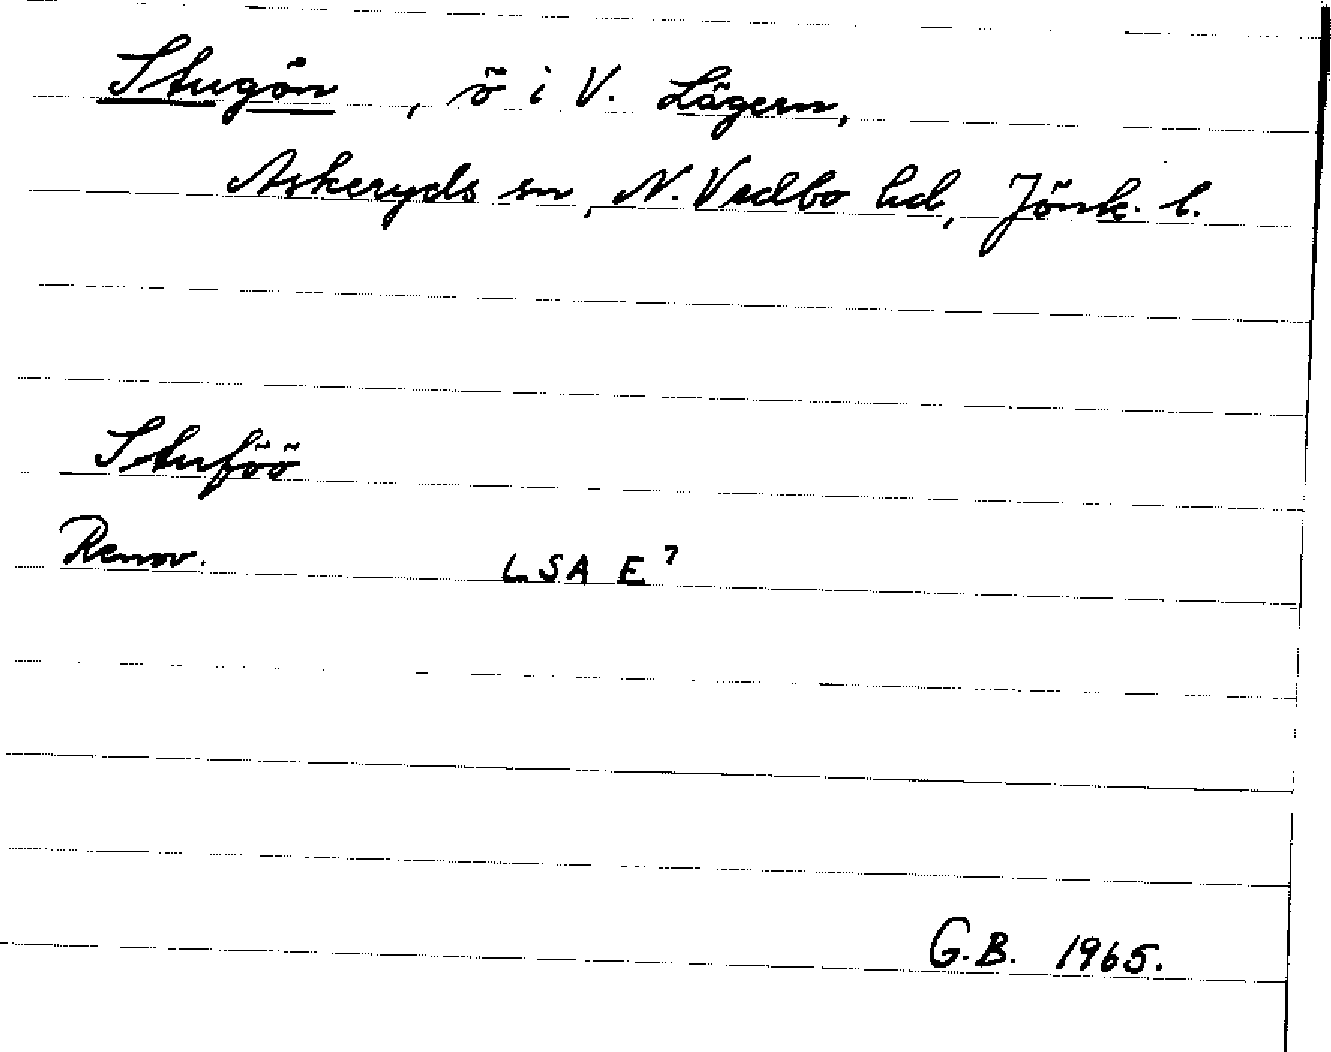 Stugön, ö i V. Lägern,
Askeryds sn, N. Vedbo hd, Jönk. l.
Stuföö
Renov. LSA E⁷
G.B. 1965.